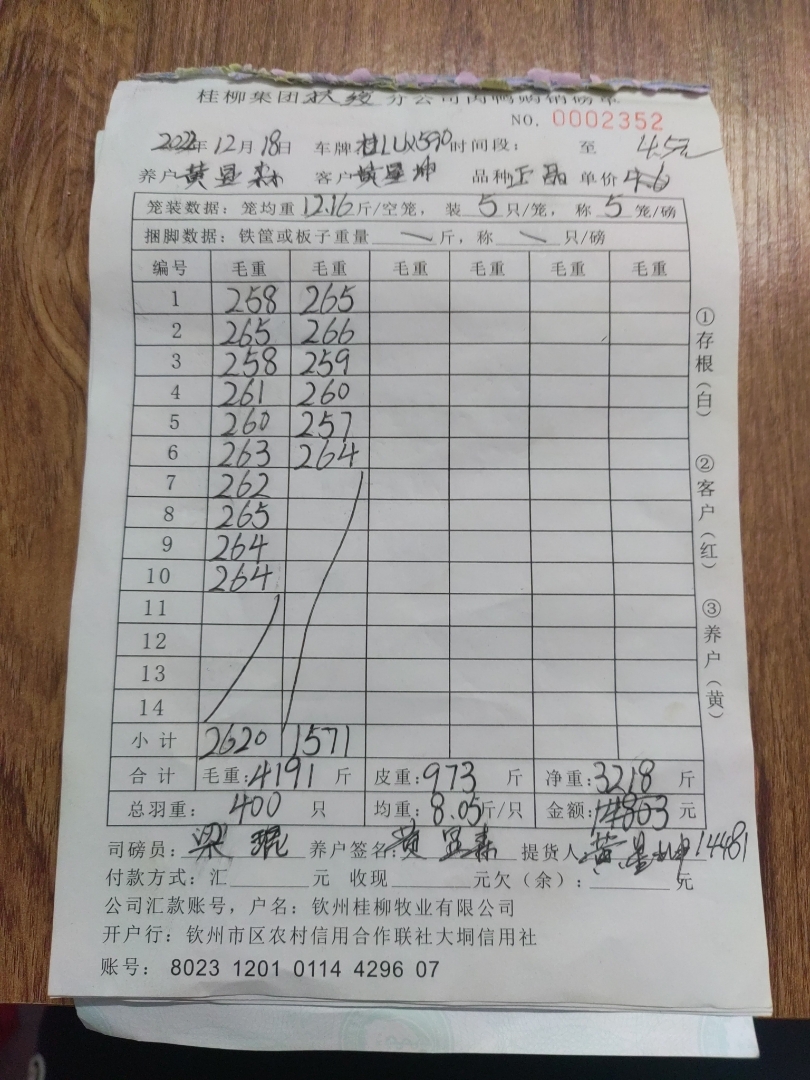 桂柳集团扶绥分公司肉鸭购销磅单
NO. 0002352
2022年12月18日 车牌 桂LUX590 时间段： 至 4.5元
养户 黄显森 客户 黄显坤 品种 单价 4.6
笼装数据：笼均重12.16斤/空笼，装5只/笼，称5笼/磅
捆脚数据：铁筐或板子重量 \ 斤，称 \ 只/磅
编号 毛重 毛重 毛重 毛重 毛重 毛重
1 258 265
2 265 266
3 258 259
4 261 260
5 260 257
6 263 264
7 262
8 265
9 264
10 264
11
12
13
14
小计 2620 1571
合计 毛重：4191 斤 皮重：973 斤 净重：3218 斤
总羽重： 400 只 均重：8.05斤/只 金额：14803 元
司磅员： 梁琨 养户签名：黄显森 提货人 黄显坤 14481
付款方式：汇______元 收现______元欠（余）：______元
公司汇款账号，户名：钦州桂柳牧业有限公司
开户行：钦州市区农村信用合作联社大垌信用社
账号： 8023 1201 0114 4296 07
①存根（白） ②客户（红） ③养户（黄）